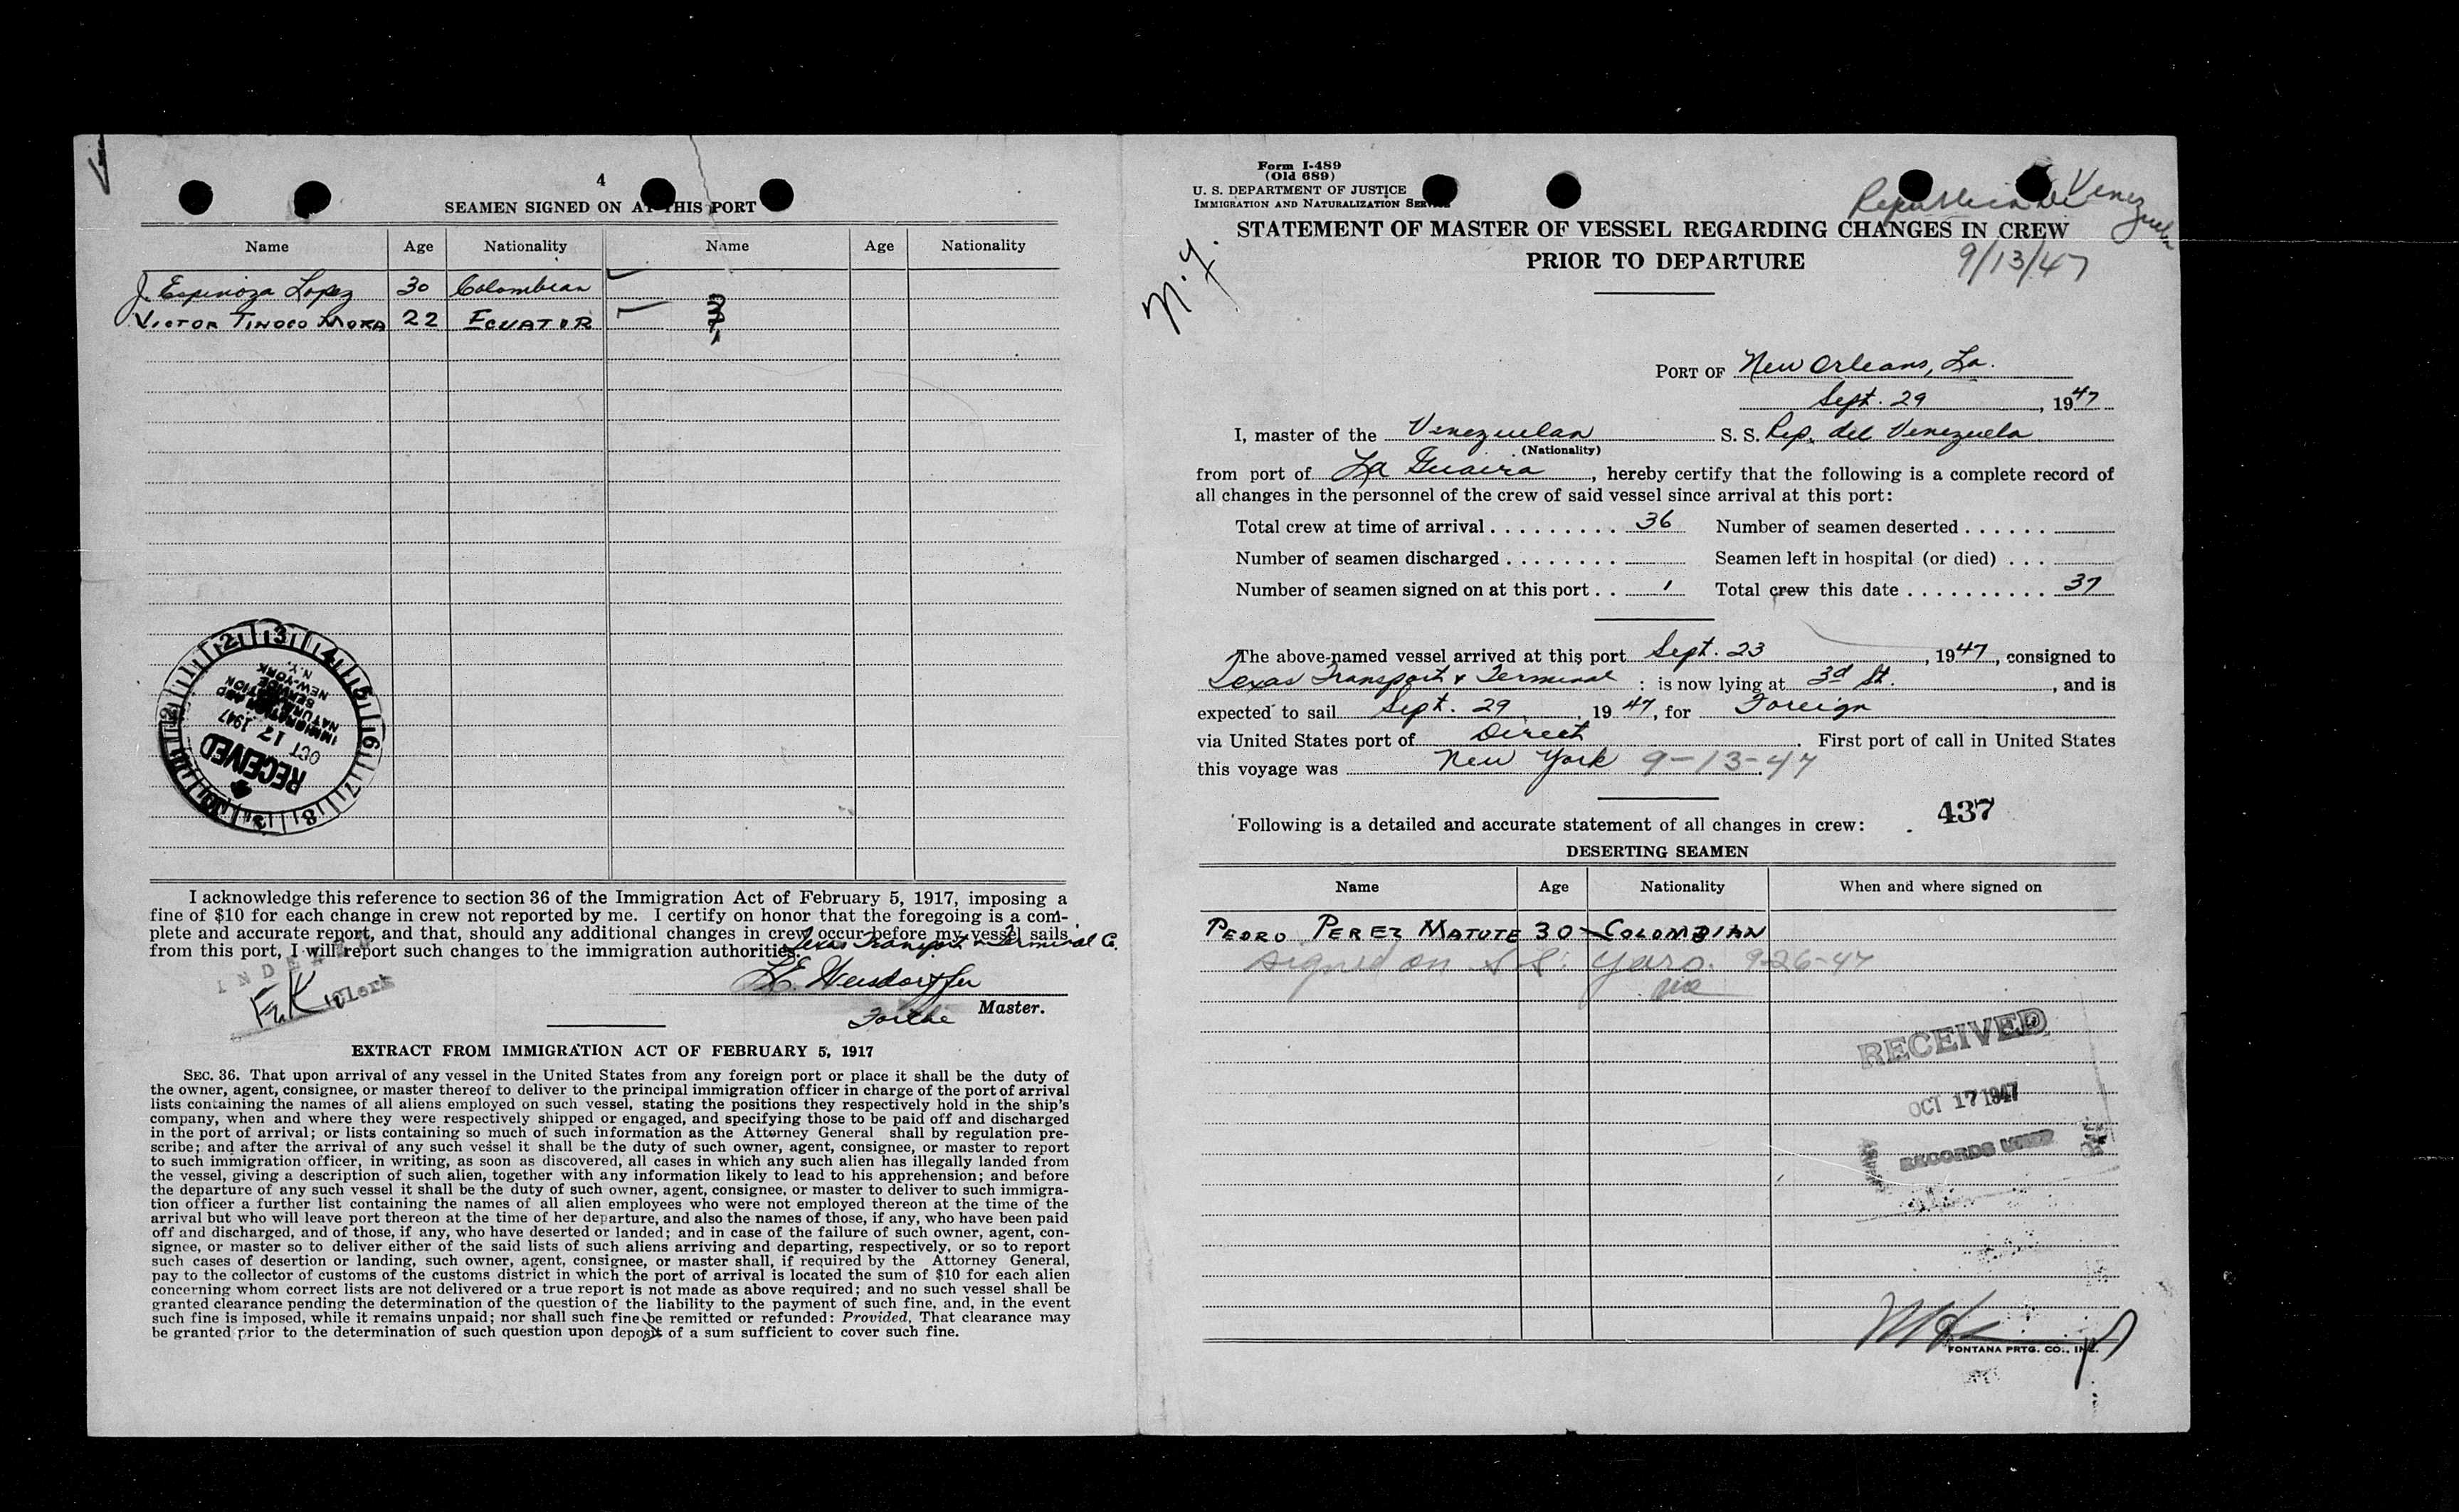 4
SEAMEN SIGNED ON AT THIS PORT
Name Age Nationality Name Age Nationality
J. Espinoza Lopez 30 Colombian
VICTOR TINOCO MORA 22 ECUATOR
RECEIVED
OCT 17 1947
IMMIGRATION AND
NATURALIZATION
SERVICE
NEW YORK
N.Y.
I acknowledge this reference to section 36 of the Immigration Act of February 5, 1917, imposing a
fine of $10 for each change in crew not reported by me. I certify on honor that the foregoing is a com-
plete and accurate report, and that, should any additional changes in crew occur before my vessel sails
from this port, I will report such changes to the immigration authorities.
Texas Transport & Terminal Co.
Clerk
Master.
For the
EXTRACT FROM IMMIGRATION ACT OF FEBRUARY 5, 1917
SEC. 36. That upon arrival of any vessel in the United States from any foreign port or place it shall be the duty of
the owner, agent, consignee, or master thereof to deliver to the principal immigration officer in charge of the port of arrival
lists containing the names of all aliens employed on such vessel, stating the positions they respectively hold in the ship's
company, when and where they were respectively shipped or engaged, and specifying those to be paid off and discharged
in the port of arrival; or lists containing so much of such information as the Attorney General shall by regulation pre-
scribe; and after the arrival of any such vessel it shall be the duty of such owner, agent, consignee, or master to report
to such immigration officer, in writing, as soon as discovered, all cases in which any such alien has illegally landed from
the vessel, giving a description of such alien, together with any information likely to lead to his apprehension; and before
the departure of any such vessel it shall be the duty of such owner, agent, consignee, or master to deliver to such immigra-
tion officer a further list containing the names of all alien employees who were not employed thereon at the time of the
arrival but who will leave port thereon at the time of her departure, and also the names of those, if any, who have been paid
off and discharged, and of those, if any, who have deserted or landed; and in case of the failure of such owner, agent, con-
signee, or master so to deliver either of the said lists of such aliens arriving and departing, respectively, or so to report
such cases of desertion or landing, such owner, agent, consignee, or master shall, if required by the Attorney General,
pay to the collector of customs of the customs district in which the port of arrival is located the sum of $10 for each alien
concerning whom correct lists are not delivered or a true report is not made as above required; and no such vessel shall be
granted clearance pending the determination of the question of the liability to the payment of such fine, and, in the event
such fine is imposed, while it remains unpaid; nor shall such fine be remitted or refunded: Provided, That clearance may
be granted prior to the determination of such question upon deposit of a sum sufficient to cover such fine.
Form I-489
(Old 689)
U. S. DEPARTMENT OF JUSTICE
IMMIGRATION AND NATURALIZATION SERVICE
Republica de Venezuela
9/13/47
N.Y.
STATEMENT OF MASTER OF VESSEL REGARDING CHANGES IN CREW
PRIOR TO DEPARTURE
PORT OF New Orleans, La.
Sept. 29, 1947
I, master of the Venezuelan S. S. Rep. del Venezuela
(Nationality)
from port of La Guaira, hereby certify that the following is a complete record of
all changes in the personnel of the crew of said vessel since arrival at this port:
Total crew at time of arrival 36 Number of seamen deserted
Number of seamen discharged Seamen left in hospital (or died)
Number of seamen signed on at this port 1 Total crew this date 37
The above-named vessel arrived at this port Sept. 23, 1947, consigned to
Texas Transport & Terminal : is now lying at 3d St., and is
expected to sail Sept. 29, 1947, for Foreign
via United States port of Direct. First port of call in United States
this voyage was New York 9-13-47
437
Following is a detailed and accurate statement of all changes in crew:
DESERTING SEAMEN
Name Age Nationality When and where signed on
PEDRO PEREZ MATUTE 30 COLOMBIAN
signed on S S. Yaro. 9-26-47
RECEIVED
OCT 17 1947
RECORDS UNIT
FONTANA PRTG. CO., INC.